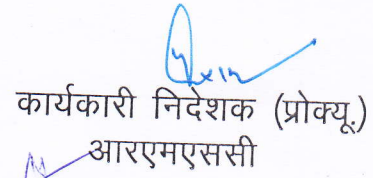 कार्यकारी निदेशक (प्रोक्यू.)
आरएमएससी